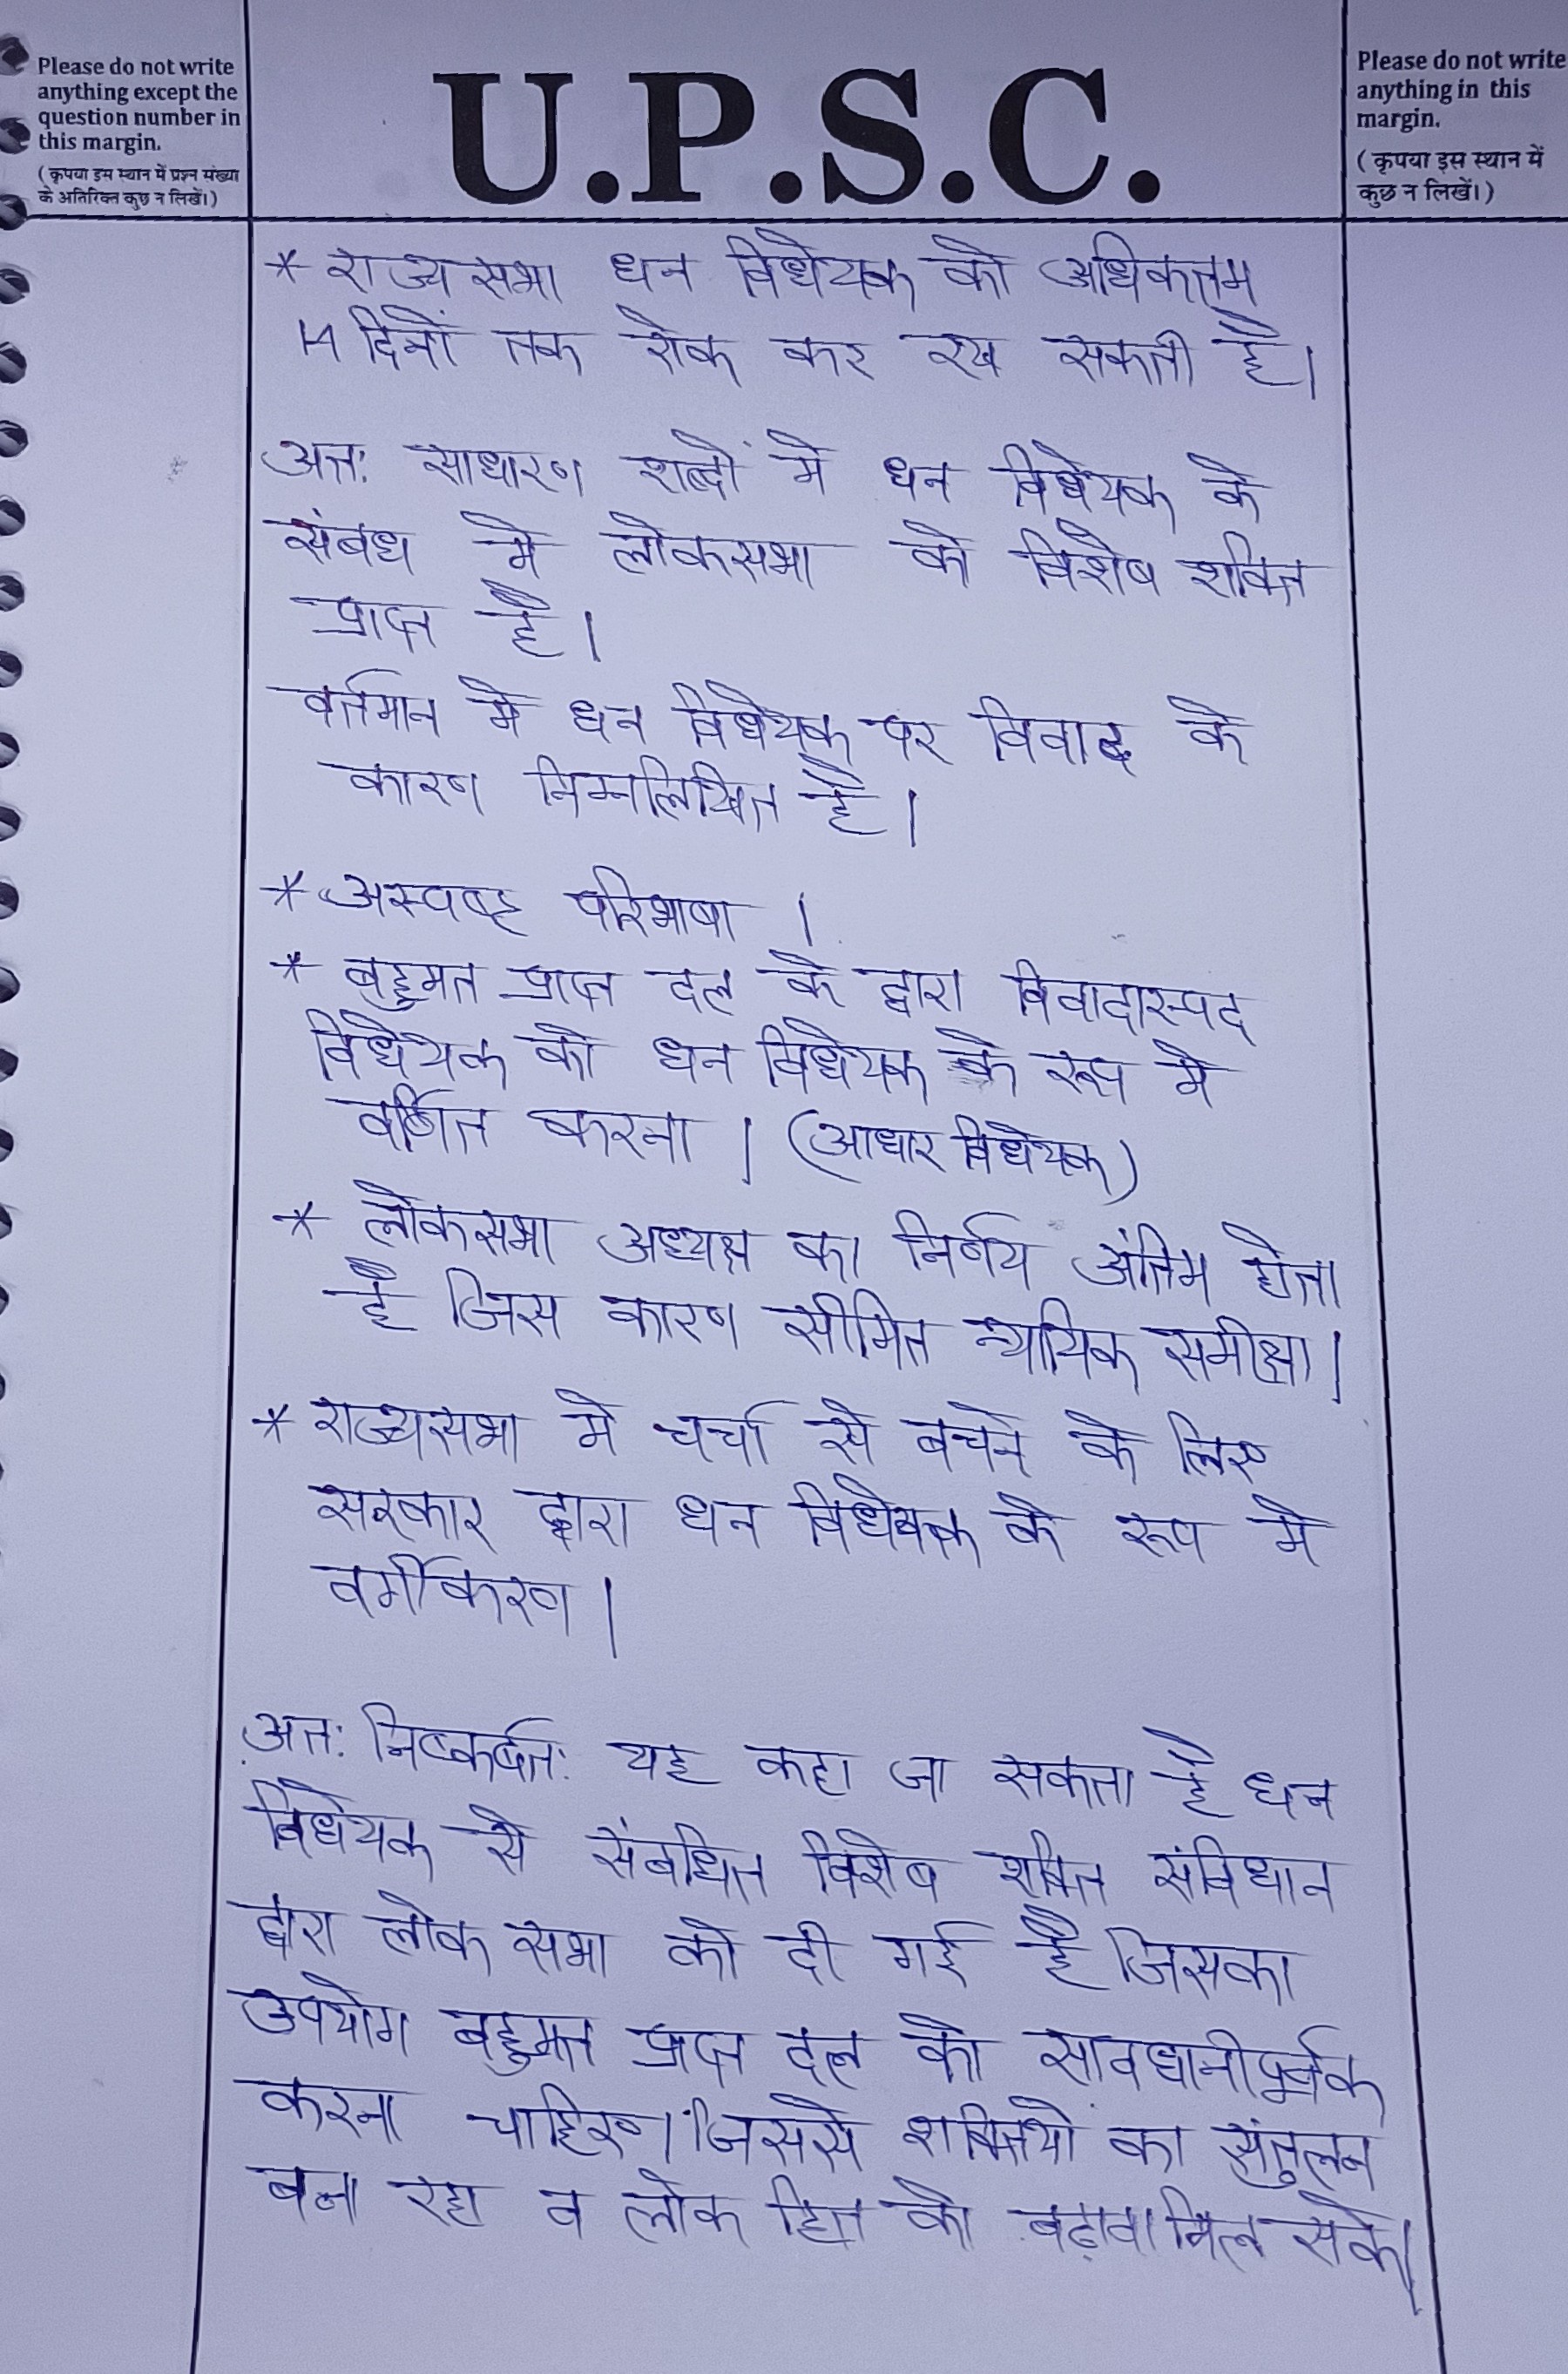 Please do not write
anything except the
question number in
this margin.
(कृपया इस स्थान में प्रश्न संख्या
के अतिरिक्त कुछ न लिखें।)
U.P.S.C.
Please do not write
anything in this
margin.
(कृपया इस स्थान में
कुछ न लिखें।)
* राज्यसभा धन विधेयक को अधिकतम
14 दिनों तक रोक कर रख सकती है।
अतः साधारण शब्दों में धन विधेयक के
संबंध मे लोकसभा को विशेष शक्ति
प्राप्त है।
वर्तमान मे धन विधेयक पर विवाद के
कारण निम्नलिखित है।
* अस्पष्ट परिभाषा ।
* बहुमत प्राप्त दल के द्वारा विवादास्पद
विधेयक को धन विधेयक के रूप मे
वर्णित करना । (आधार विधेयक)
* लोकसभा अध्यक्ष का निर्णय अंतिम होता
है जिस कारण सीमित न्यायिक समीक्षा।
* राज्यसभा मे चर्चा से बचने के लिए
सरकार द्वारा धन विधेयक के रूप मे
वर्गीकरण।
अतः निष्कर्षतः यह कहा जा सकता है धन
विधेयक से संबंधित विशेष शक्ति संविधान
द्वारा लोक सभा को दी गई है जिसका
उपयोग बहुमत प्राप्त दल को सावधानीपूर्वक
करना चाहिए। जिससे शक्तियों का संतुलन
बना रहा व लोक हित को बढ़ावा मिल सके।